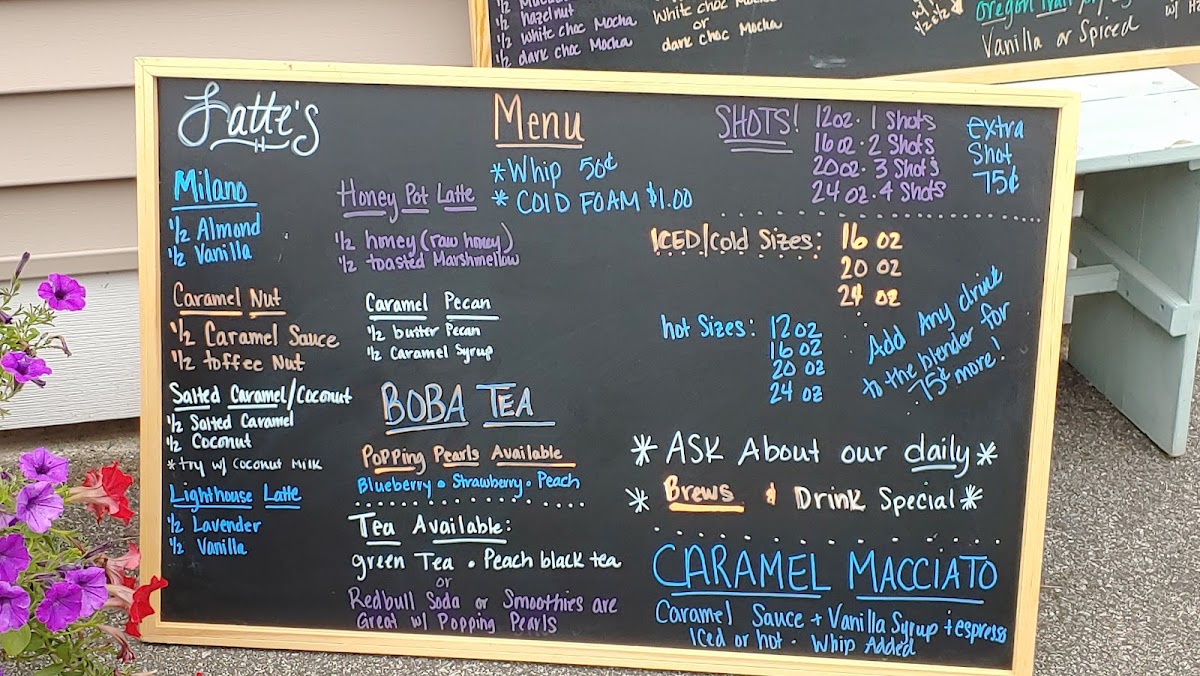 hazelnut
1/2 White choc Mocha
1/2 dark choc Mocha
White choc Mocha
or
dark choc Mocha
Oregon Trail
Vanilla or Spiced
Latte's
Milano
1/2 Almond
1/2 Vanilla
Caramel Nut
1/2 Caramel Sauce
1/2 toffee Nut
Salted Caramel/Coconut
1/2 Salted Caramel
1/2 Coconut
*try w/ Coconut Milk
Lighthouse Latte
1/2 Lavender
1/2 Vanilla
Honey Pot Latte
1/2 honey (raw honey)
1/2 toasted Marshmellow
Caramel Pecan
1/2 butter Pecan
1/2 Caramel Syrup
BOBA TEA
Popping Pearls Available
Blueberry • Strawberry • Peach
Tea Available:
green Tea • Peach black tea
or
Redbull Soda or Smoothies are
Great w/ Popping Pearls
Menu
*Whip 50¢
* COLD FOAM $1.00
SHOTS! 12oz. 1 Shots
16oz. 2 Shots
20oz. 3 Shots
24oz. 4 Shots
extra
Shot
75¢
ICED/Cold Sizes: 16 oz
20 oz
24 oz
hot Sizes: 12 oz
16 oz
20 oz
24 oz
Add Any drink
to the blender for
75¢ more!
*ASK About our daily*
* Brews & Drink Special*
CARAMEL MACCIATO
Caramel Sauce + Vanilla Syrup + espress
Iced or hot. Whip Added